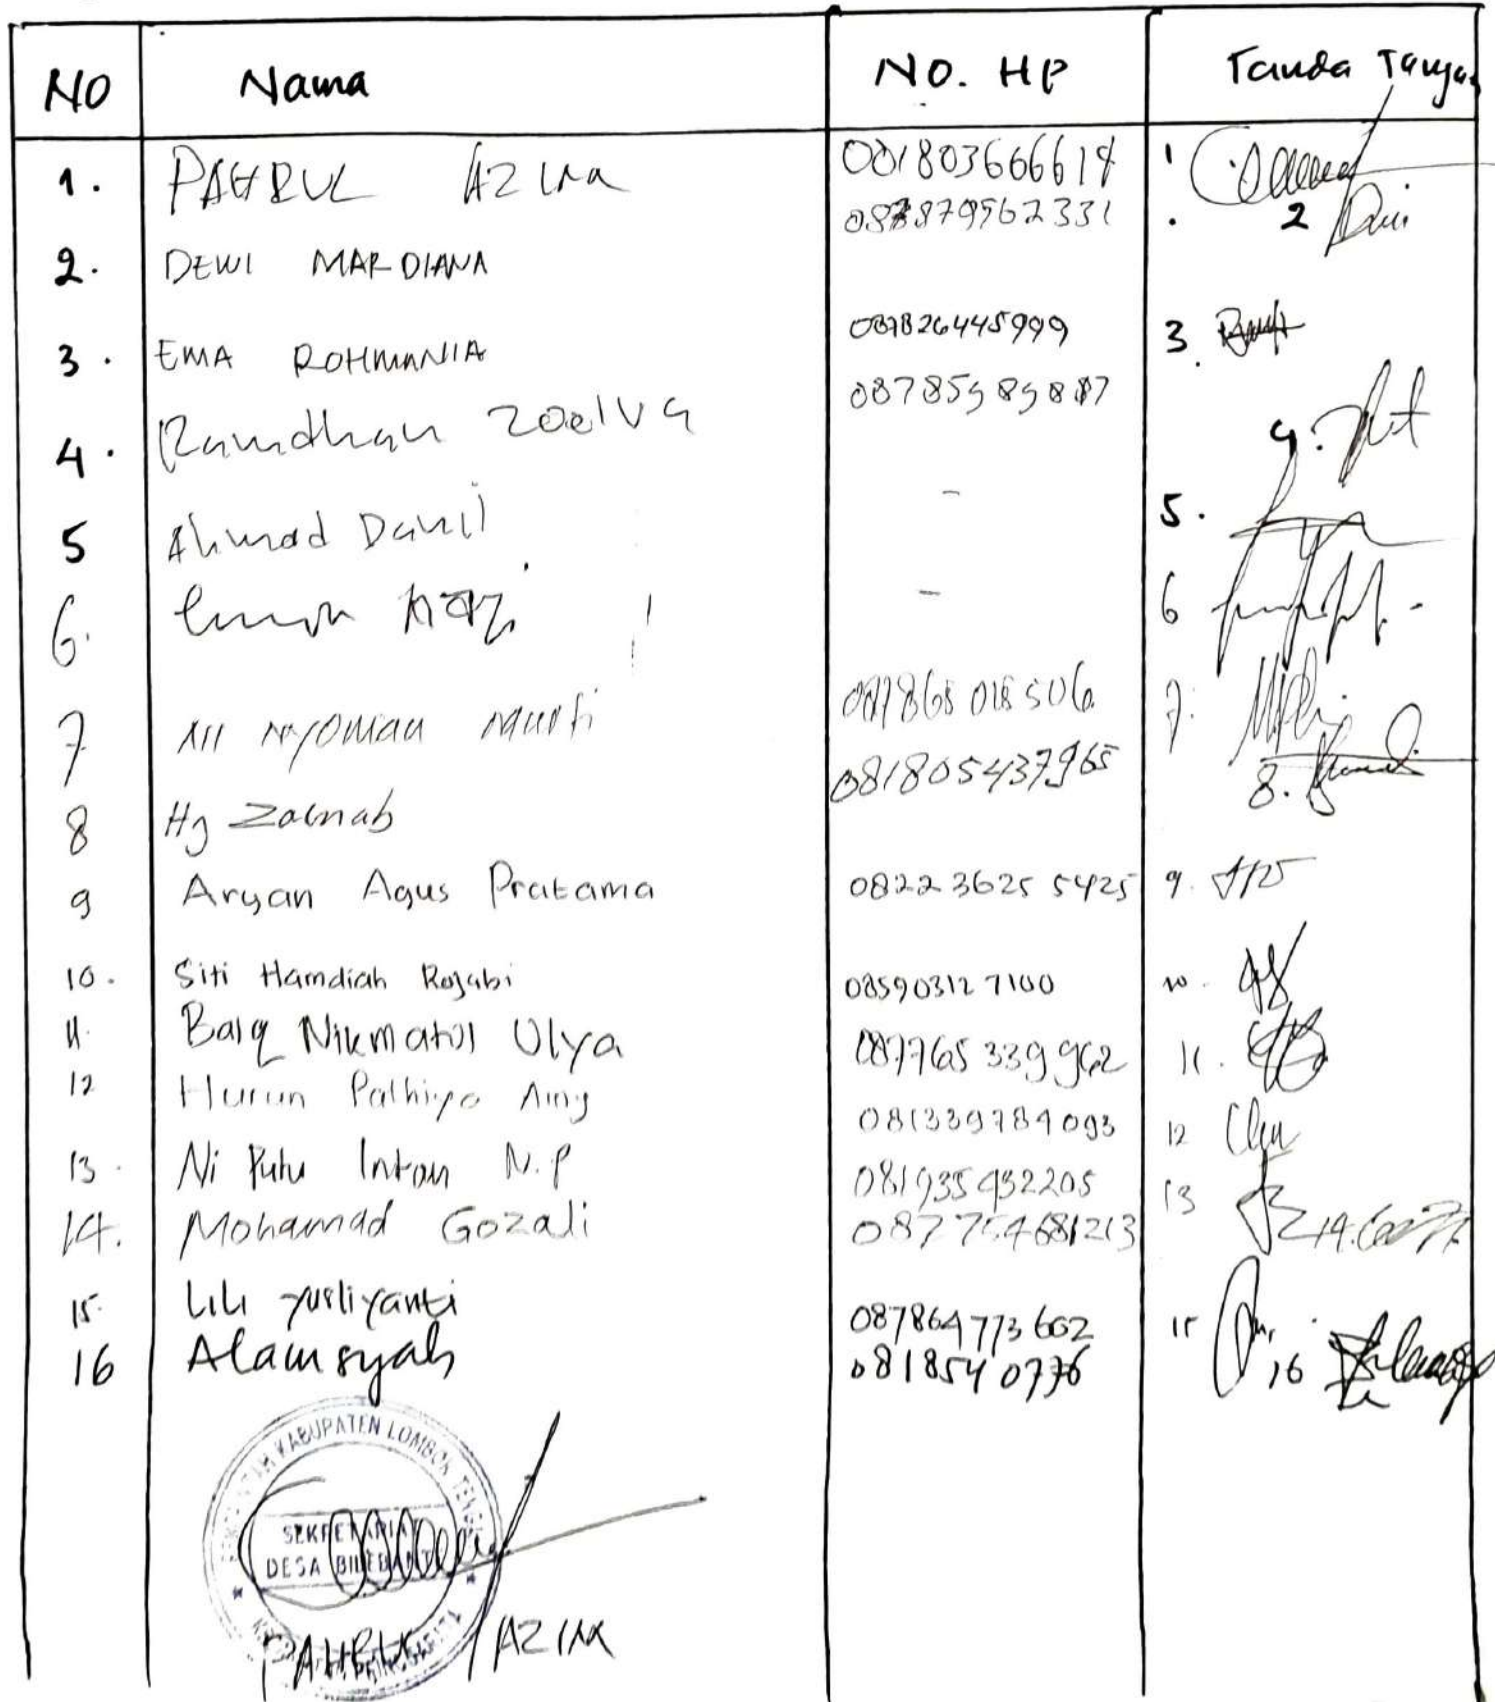 NO Nama NO. HP Tanda Tangan
1. PAHRUL AZIMA 081803666614 1
2. DEWI MARDIANA 087879562331 2 Dewi
3. EMA ROHMANIA 087826445999 3.
4. Ramdhan Zoelva 08785989887 4.
5 Ahmad Danil - 5.
6. - 6
7 Ni Nyoman Murti 087865018506 7.
8 Hj Zaenab 081805437965 8.
9 Aryan Agus Pratama 0822 3625 5425 9.
10. Siti Hamdiah Rojabi 085903127100 10.
11. Baiq Nikmatul Ulya 087765 339 962 11.
12 Hurun 081339784093 12
13. Ni Putu Intan N.P 081935932205 13
14. Mohamad Gozali 087754681213 14.
15. Lili Yusliyanti 087864773602 15
16 Alamsyah 0818540776 16
KABUPATEN LOMBOK TENGAH
SEKRETARIAT
DESA BILEBANTE
PAHRUL AZIMA